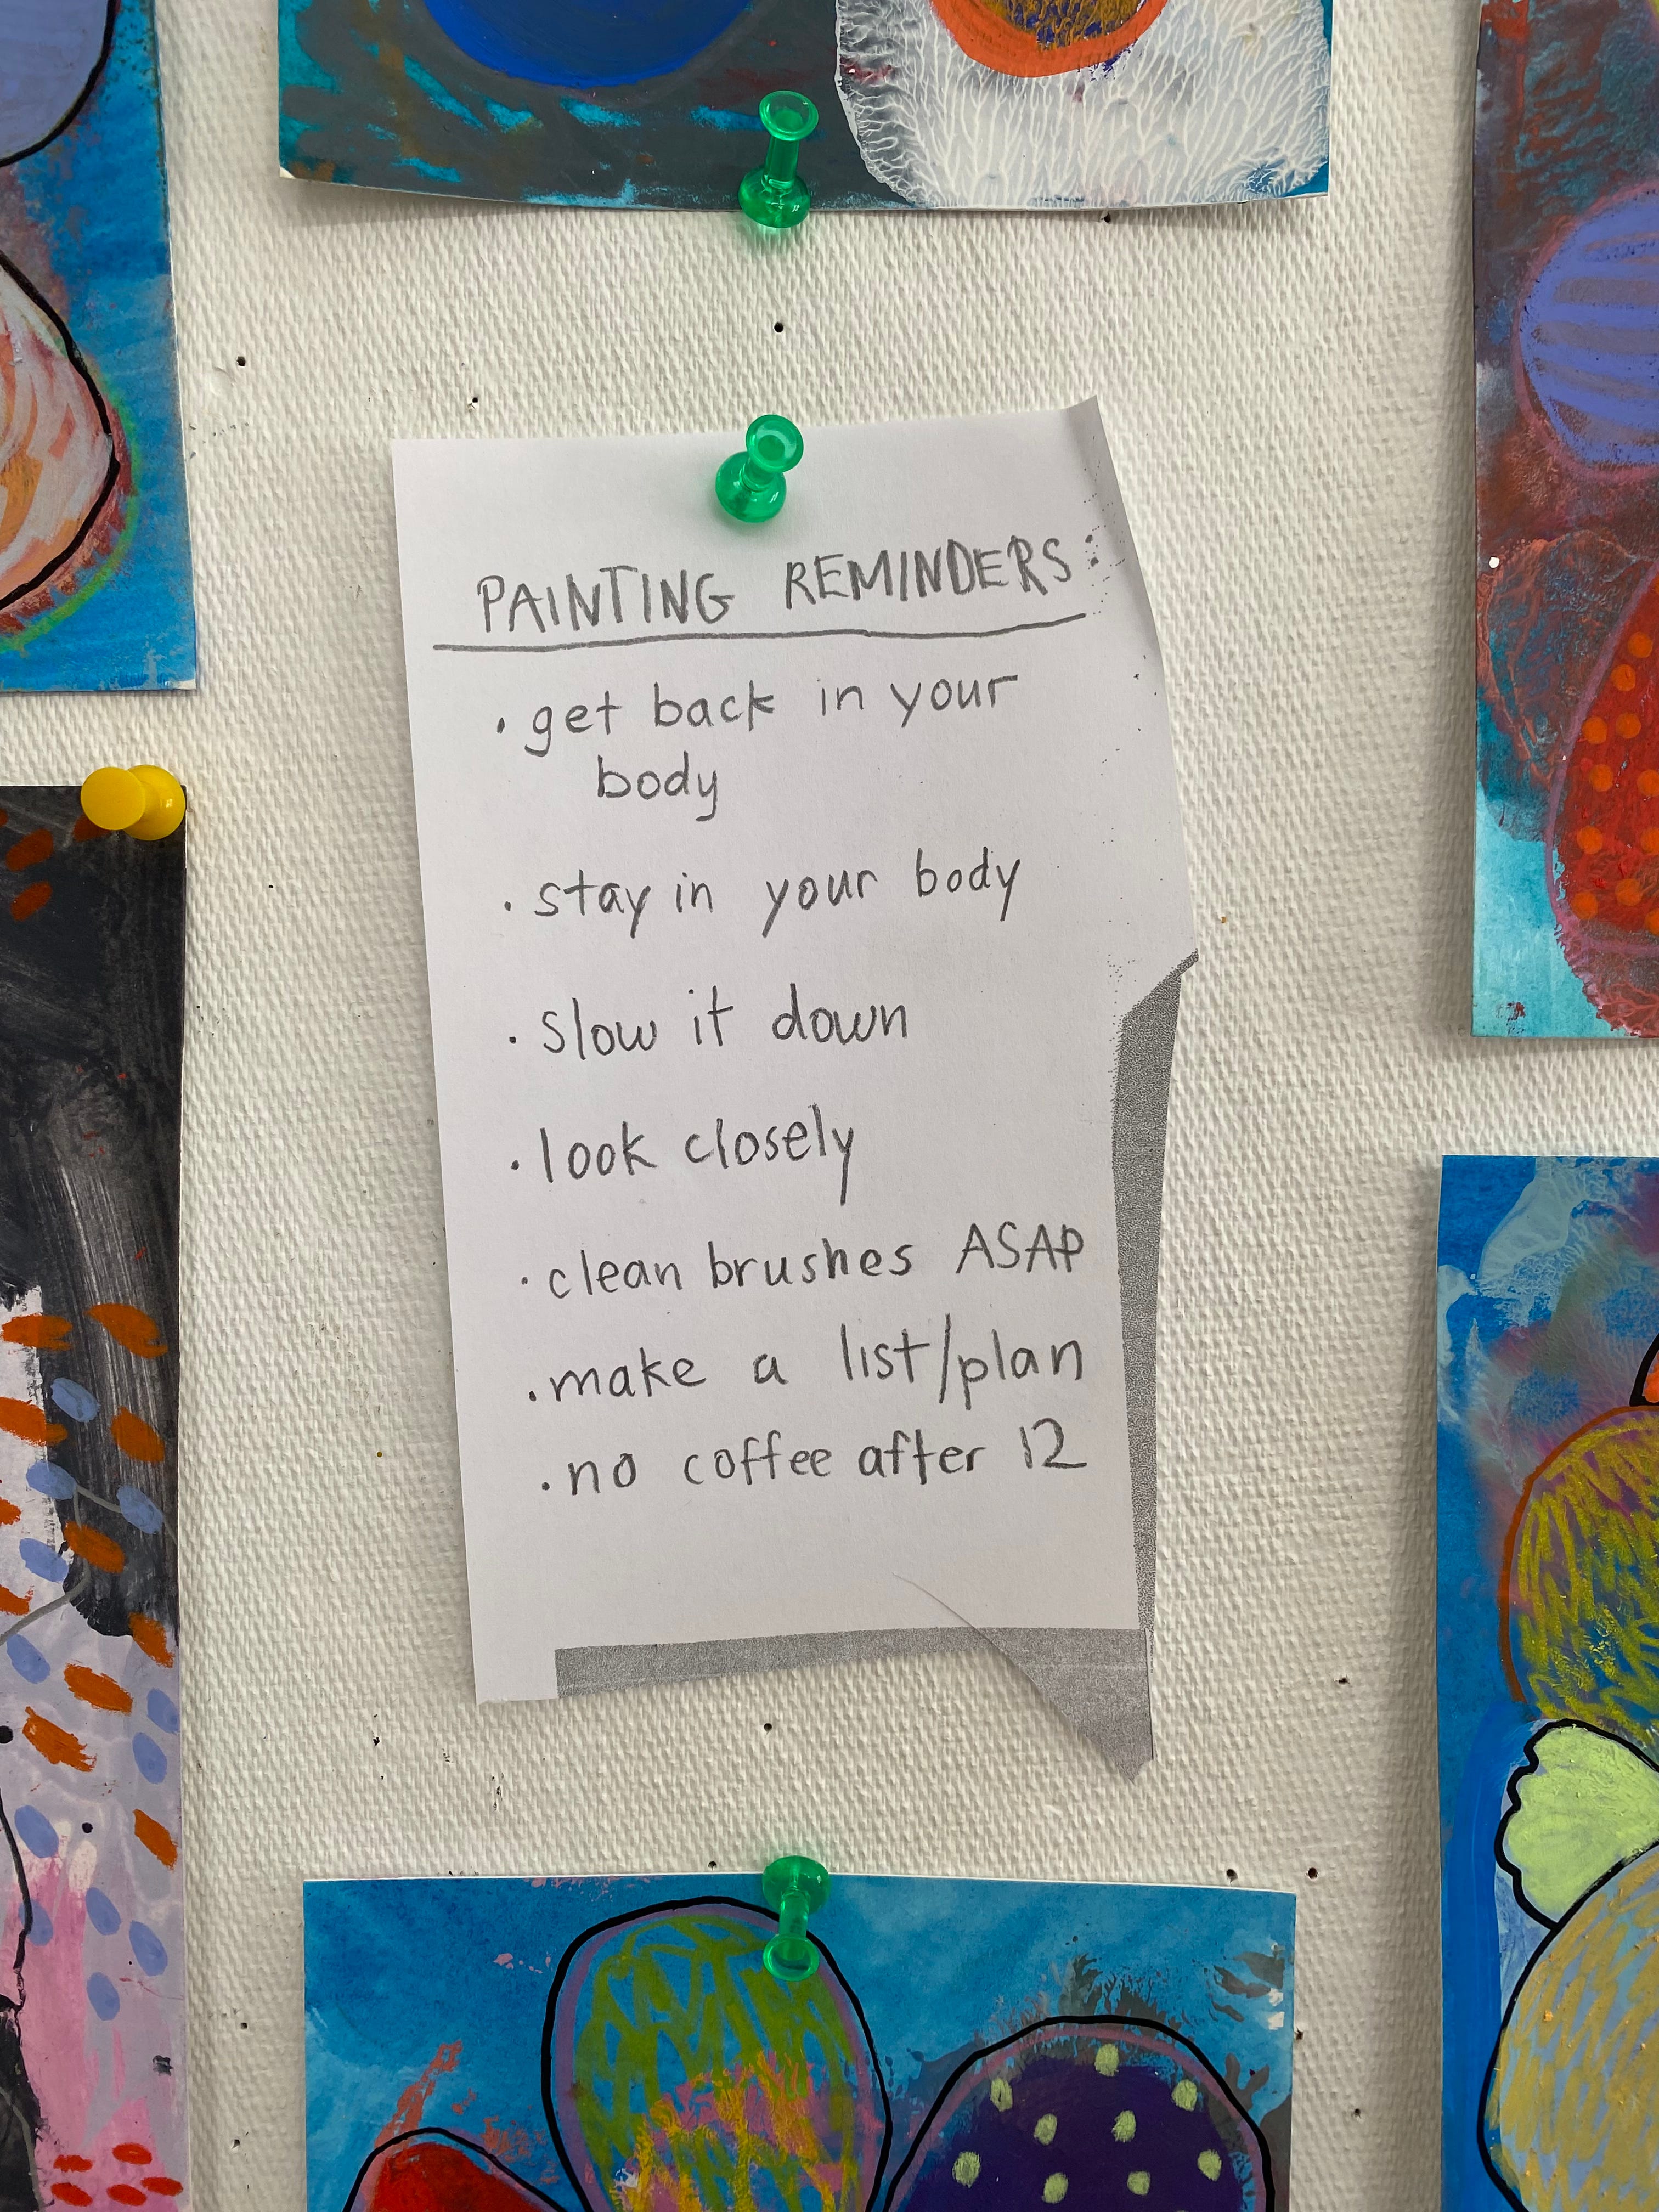 PAINTING REMINDERS:
· get back in your
body
· stay in your body
· slow it down
· look closely
· clean brushes ASAP
· make a list/plan
· no coffee after 12